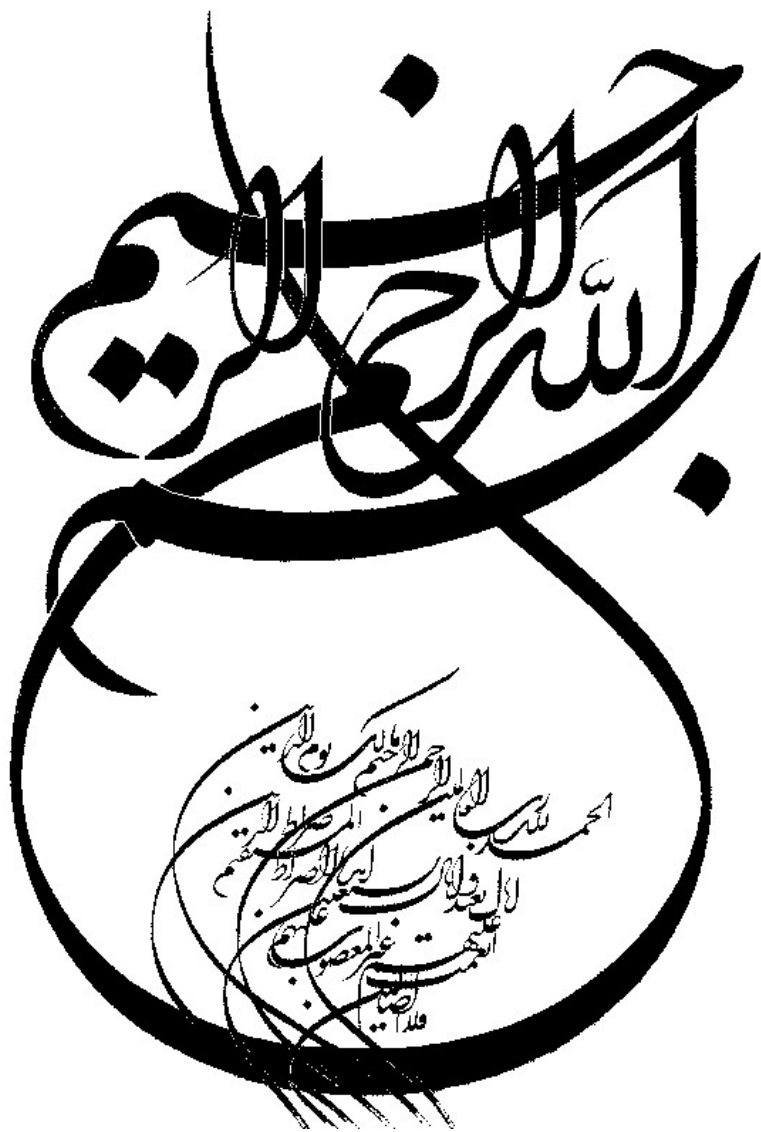 بسم الله الرحمن الرحيم
الحمد لله رب العالمين
الرحمن الرحيم مالك يوم الدين
إياك نعبد وإياك نستعين اهدنا الصراط
المستقيم صراط الذين
أنعمت عليهم غير المغضوب عليهم
ولا الضالين